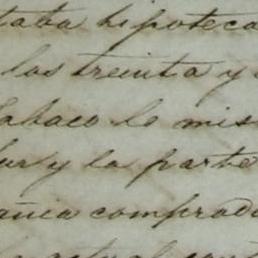 taba hipoteca
los treinta y
Tabaco lo mis
sur y la parte
añia comprado